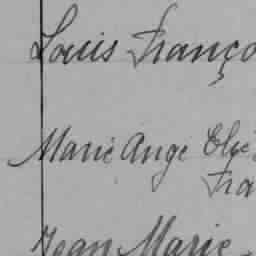 Louis Franço
Marie Ange Elie
Fra
Jean Marie